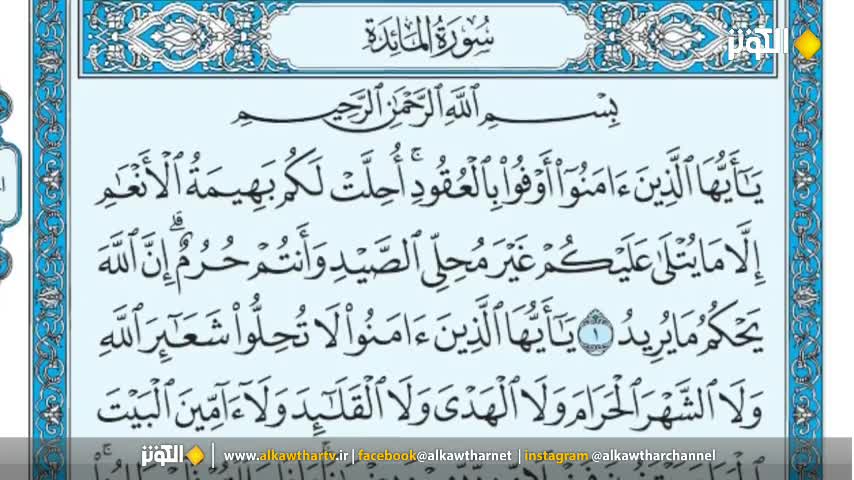 سُورَةُ المَائِدَةِ
الكوثر
بِسْمِ ٱللَّهِ ٱلرَّحْمَٰنِ ٱلرَّحِيمِ
يَٰٓأَيُّهَا ٱلَّذِينَ ءَامَنُوٓاْ أَوْفُواْ بِٱلْعُقُودِۚ أُحِلَّتْ لَكُم بَهِيمَةُ ٱلْأَنْعَٰمِ
إِلَّا مَا يُتْلَىٰ عَلَيْكُمْ غَيْرَ مُحِلِّى ٱلصَّيْدِ وَأَنتُمْ حُرُمٌۗ إِنَّ ٱللَّهَ
يَحْكُمُ مَا يُرِيدُ ١ يَٰٓأَيُّهَا ٱلَّذِينَ ءَامَنُواْ لَا تُحِلُّواْ شَعَٰٓئِرَ ٱللَّهِ
وَلَا ٱلشَّهْرَ ٱلْحَرَامَ وَلَا ٱلْهَدْىَ وَلَا ٱلْقَلَٰٓئِدَ وَلَآ ءَآمِّينَ ٱلْبَيْتَ
الكوثر www.alkawthartv.ir | facebook@alkawthartv | instagram @alkawtharchannel